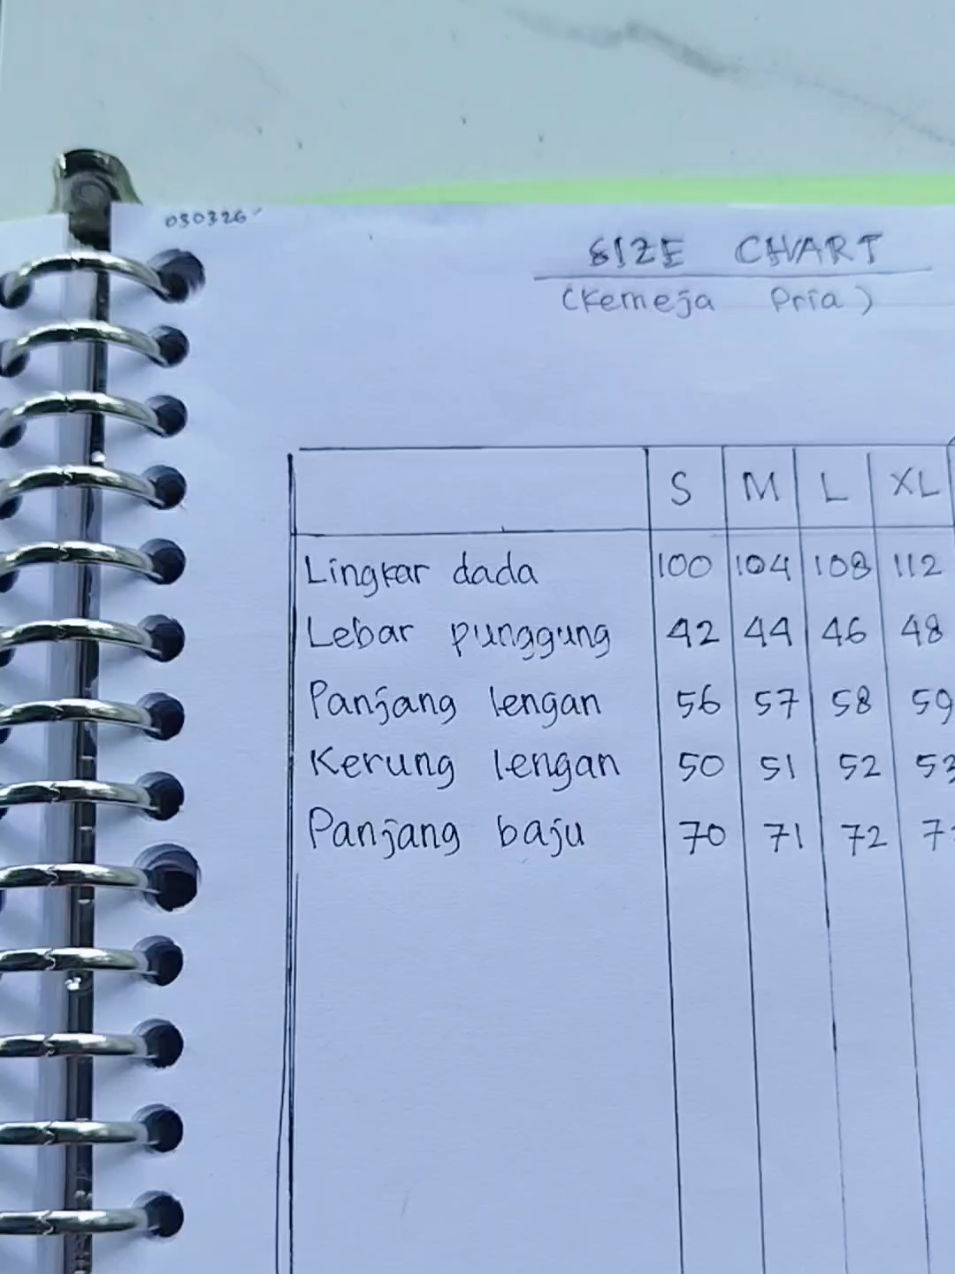 030326
SIZE CHART
(Kemeja Pria)
S M L XL
Lingkar dada 100 104 108 112
Lebar punggung 42 44 46 48
Panjang lengan 56 57 58 59
Kerung lengan 50 51 52 53
Panjang baju 70 71 72